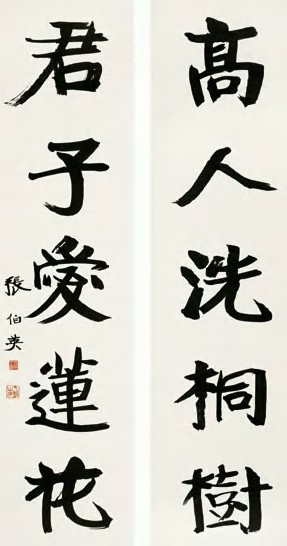 高人洗桐樹
君子愛蓮花
張伯英